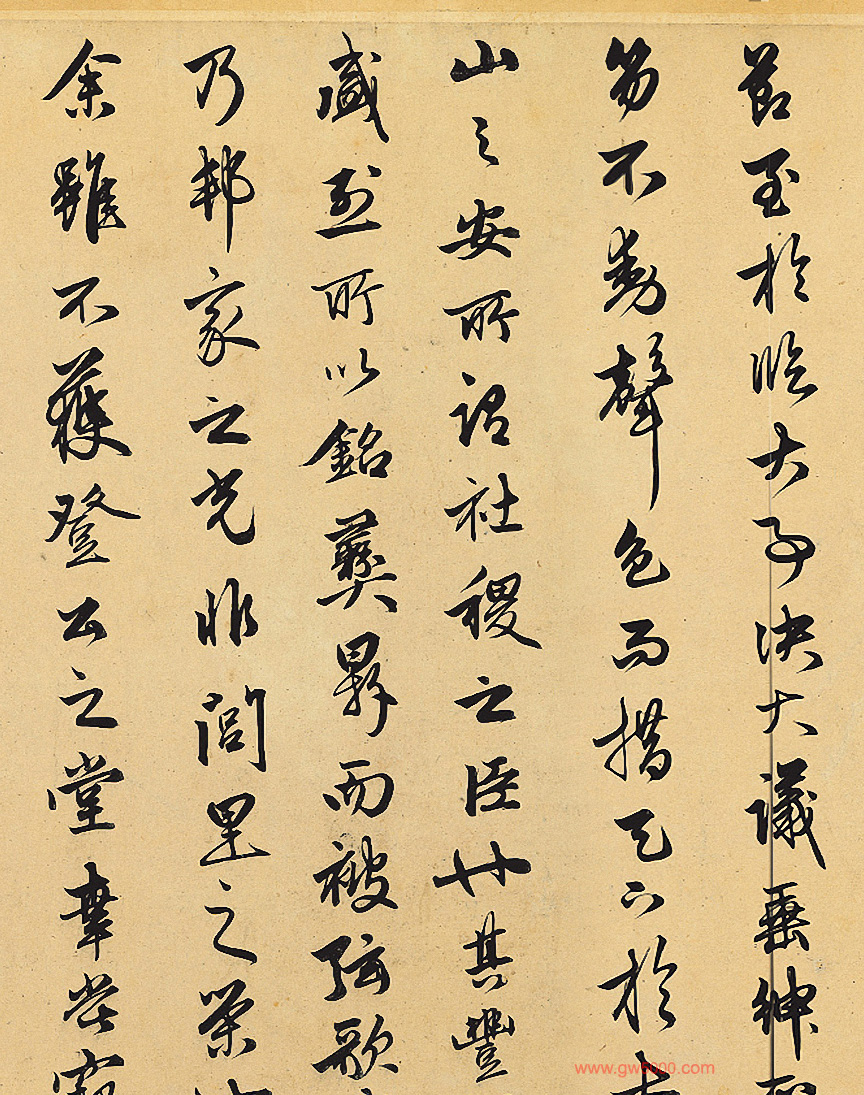 節至於臨大事決大議垂紳
笏不動聲色而措天下於
山之安所謂社稷之臣矣其豐
盛烈所以銘彝鼎而被弦歌
乃邦家之光非閭里之榮
余雖不獲登公之堂幸嘗竊
www.gw5000.com